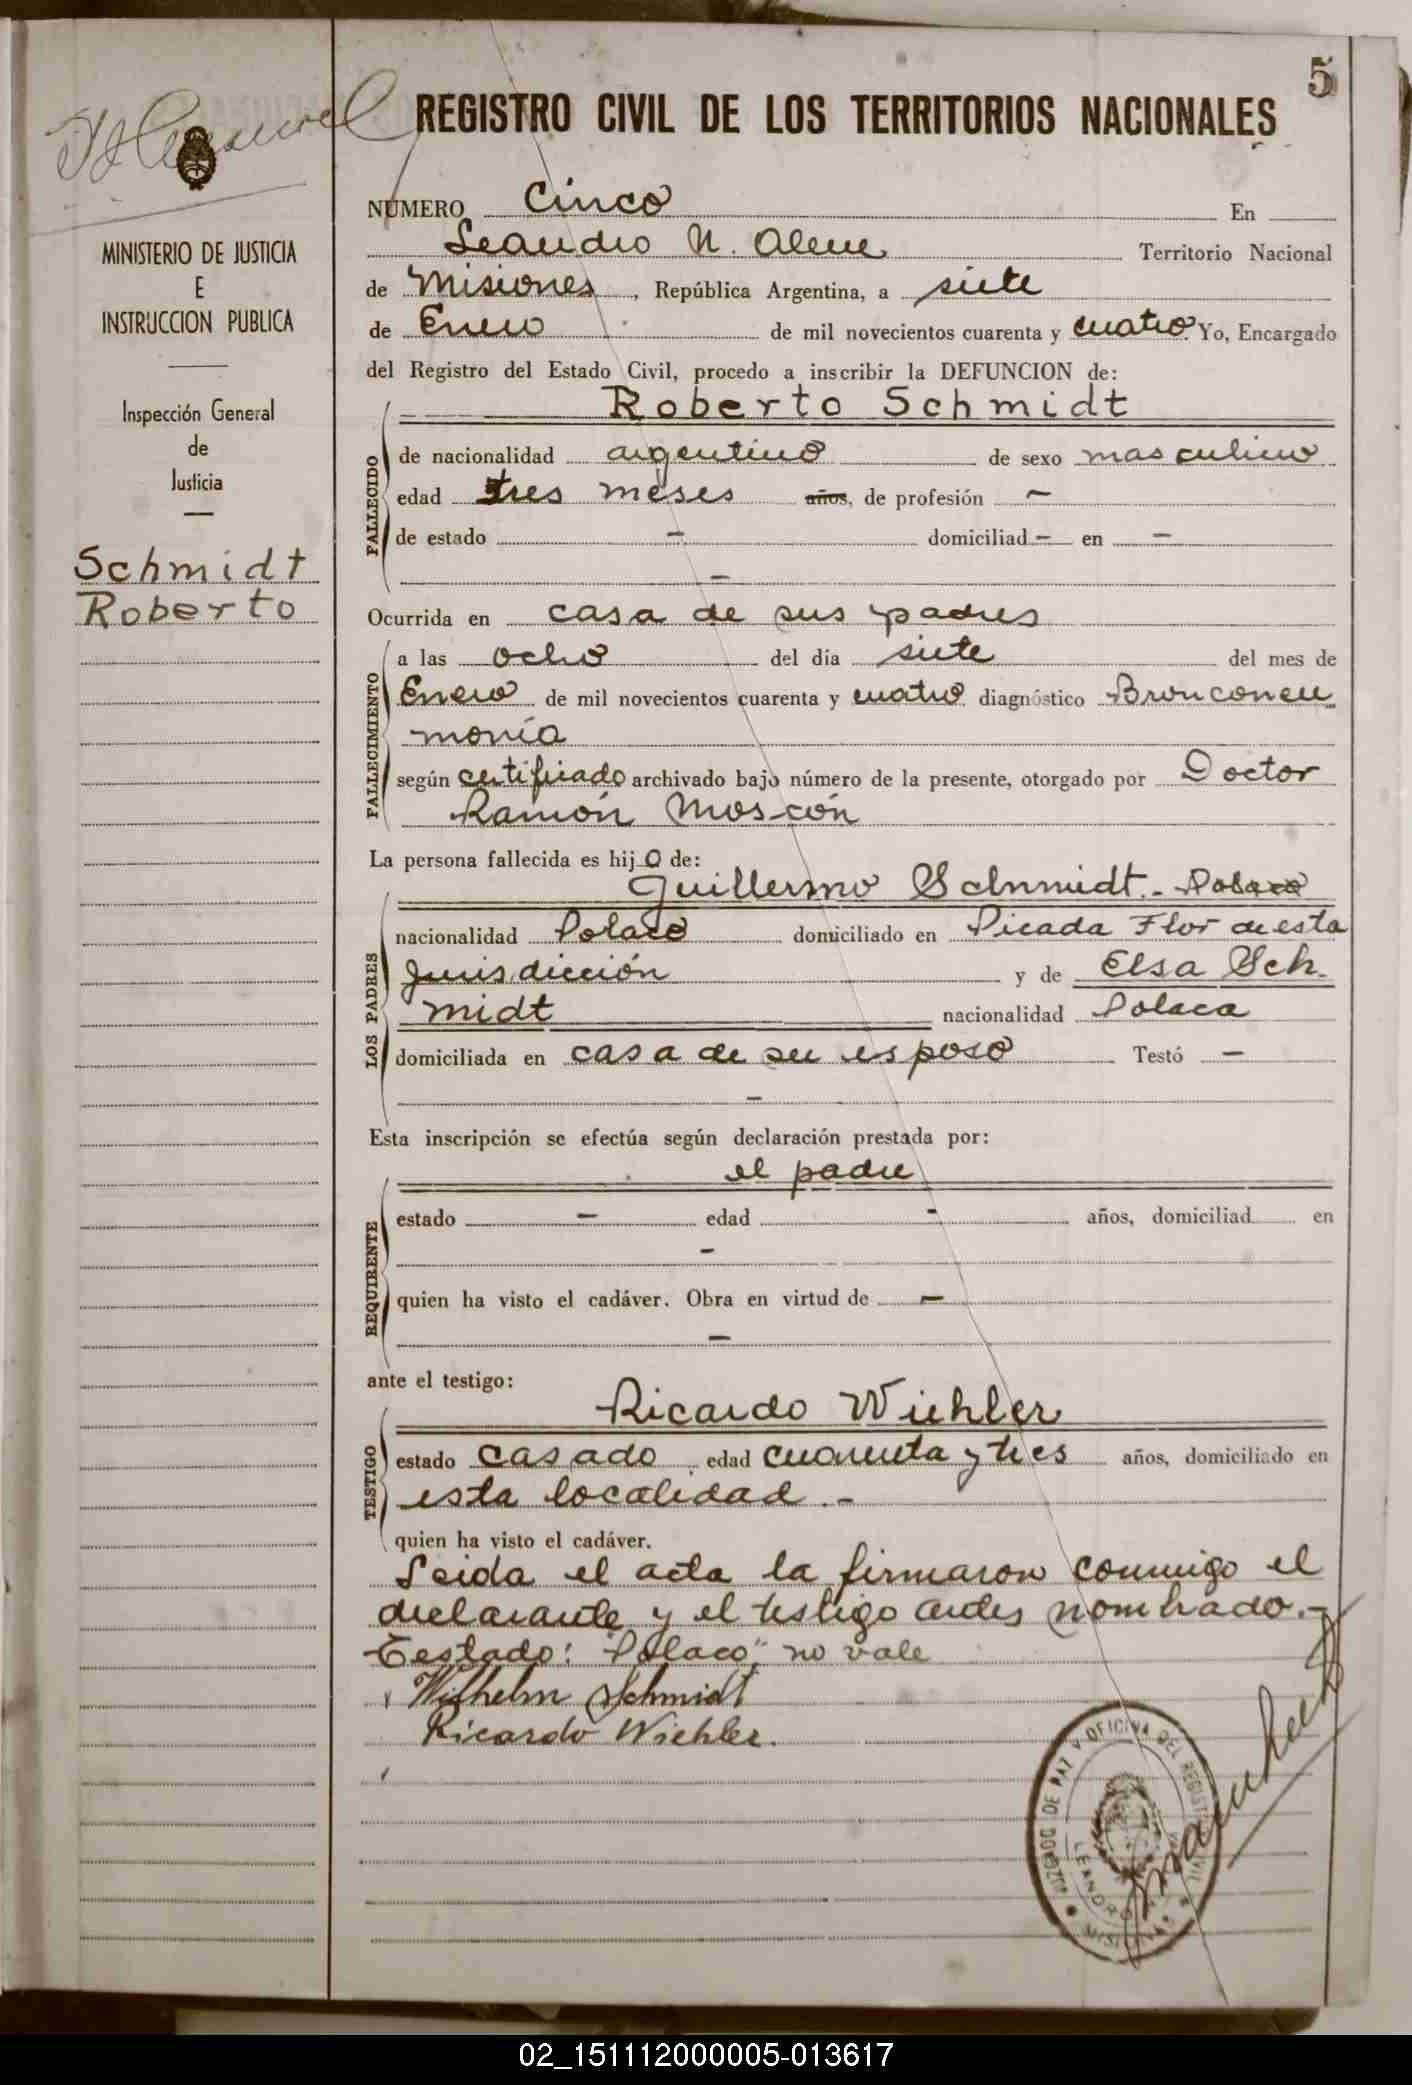 5
REGISTRO CIVIL DE LOS TERRITORIOS NACIONALES
MINISTERIO DE JUSTICIA
E
INSTRUCCION PUBLICA
Inspección General
de
Justicia
Schmidt
Roberto
NUMERO Cinco En
Leandro N. Alem Territorio Nacional
de Misiones, República Argentina, a siete
de Enero de mil novecientos cuarenta y cuatro. Yo, Encargado
del Registro del Estado Civil, procedo a inscribir la DEFUNCION de:
Roberto Schmidt
FALLECIDO
de nacionalidad argentino de sexo masculino
edad tres meses años, de profesión -
de estado - domiciliad - en -
-
Ocurrida en casa de sus padres
FALLECIMIENTO
a las ocho del día siete del mes de
Enero de mil novecientos cuarenta y cuatro diagnóstico Bronconeu
monía
según certificado archivado bajo número de la presente, otorgado por Doctor
Ramón Moscón
La persona fallecida es hijo de:
Guillermo Schmidt.- Polaco
LOS PADRES
nacionalidad Polaco domiciliado en Picada Flor de esta
Jurisdicción y de Elsa Sch-
midt nacionalidad Polaca
domiciliada en casa de su esposo Testó -
-
Esta inscripción se efectúa según declaración prestada por:
el padre
REQUIRENTE
estado - edad - años, domiciliad en
-
quien ha visto el cadáver. Obra en virtud de -
-
ante el testigo:
Ricardo Wiehler
TESTIGO
estado casado, edad cuarenta y tres años, domiciliado en
esta localidad.-
quien ha visto el cadáver.
Leida el acta la firmaron conmigo el
declarante y el testigo antes nombrado.-
Testado: "Polaco" no vale
Wilhelm Schmidt
Ricardo Wiehler.
JUZGADO DE PAZ Y OFICINA DEL REGISTRO CIVIL
LEANDRO
MISIONES
02_151112000005-013617